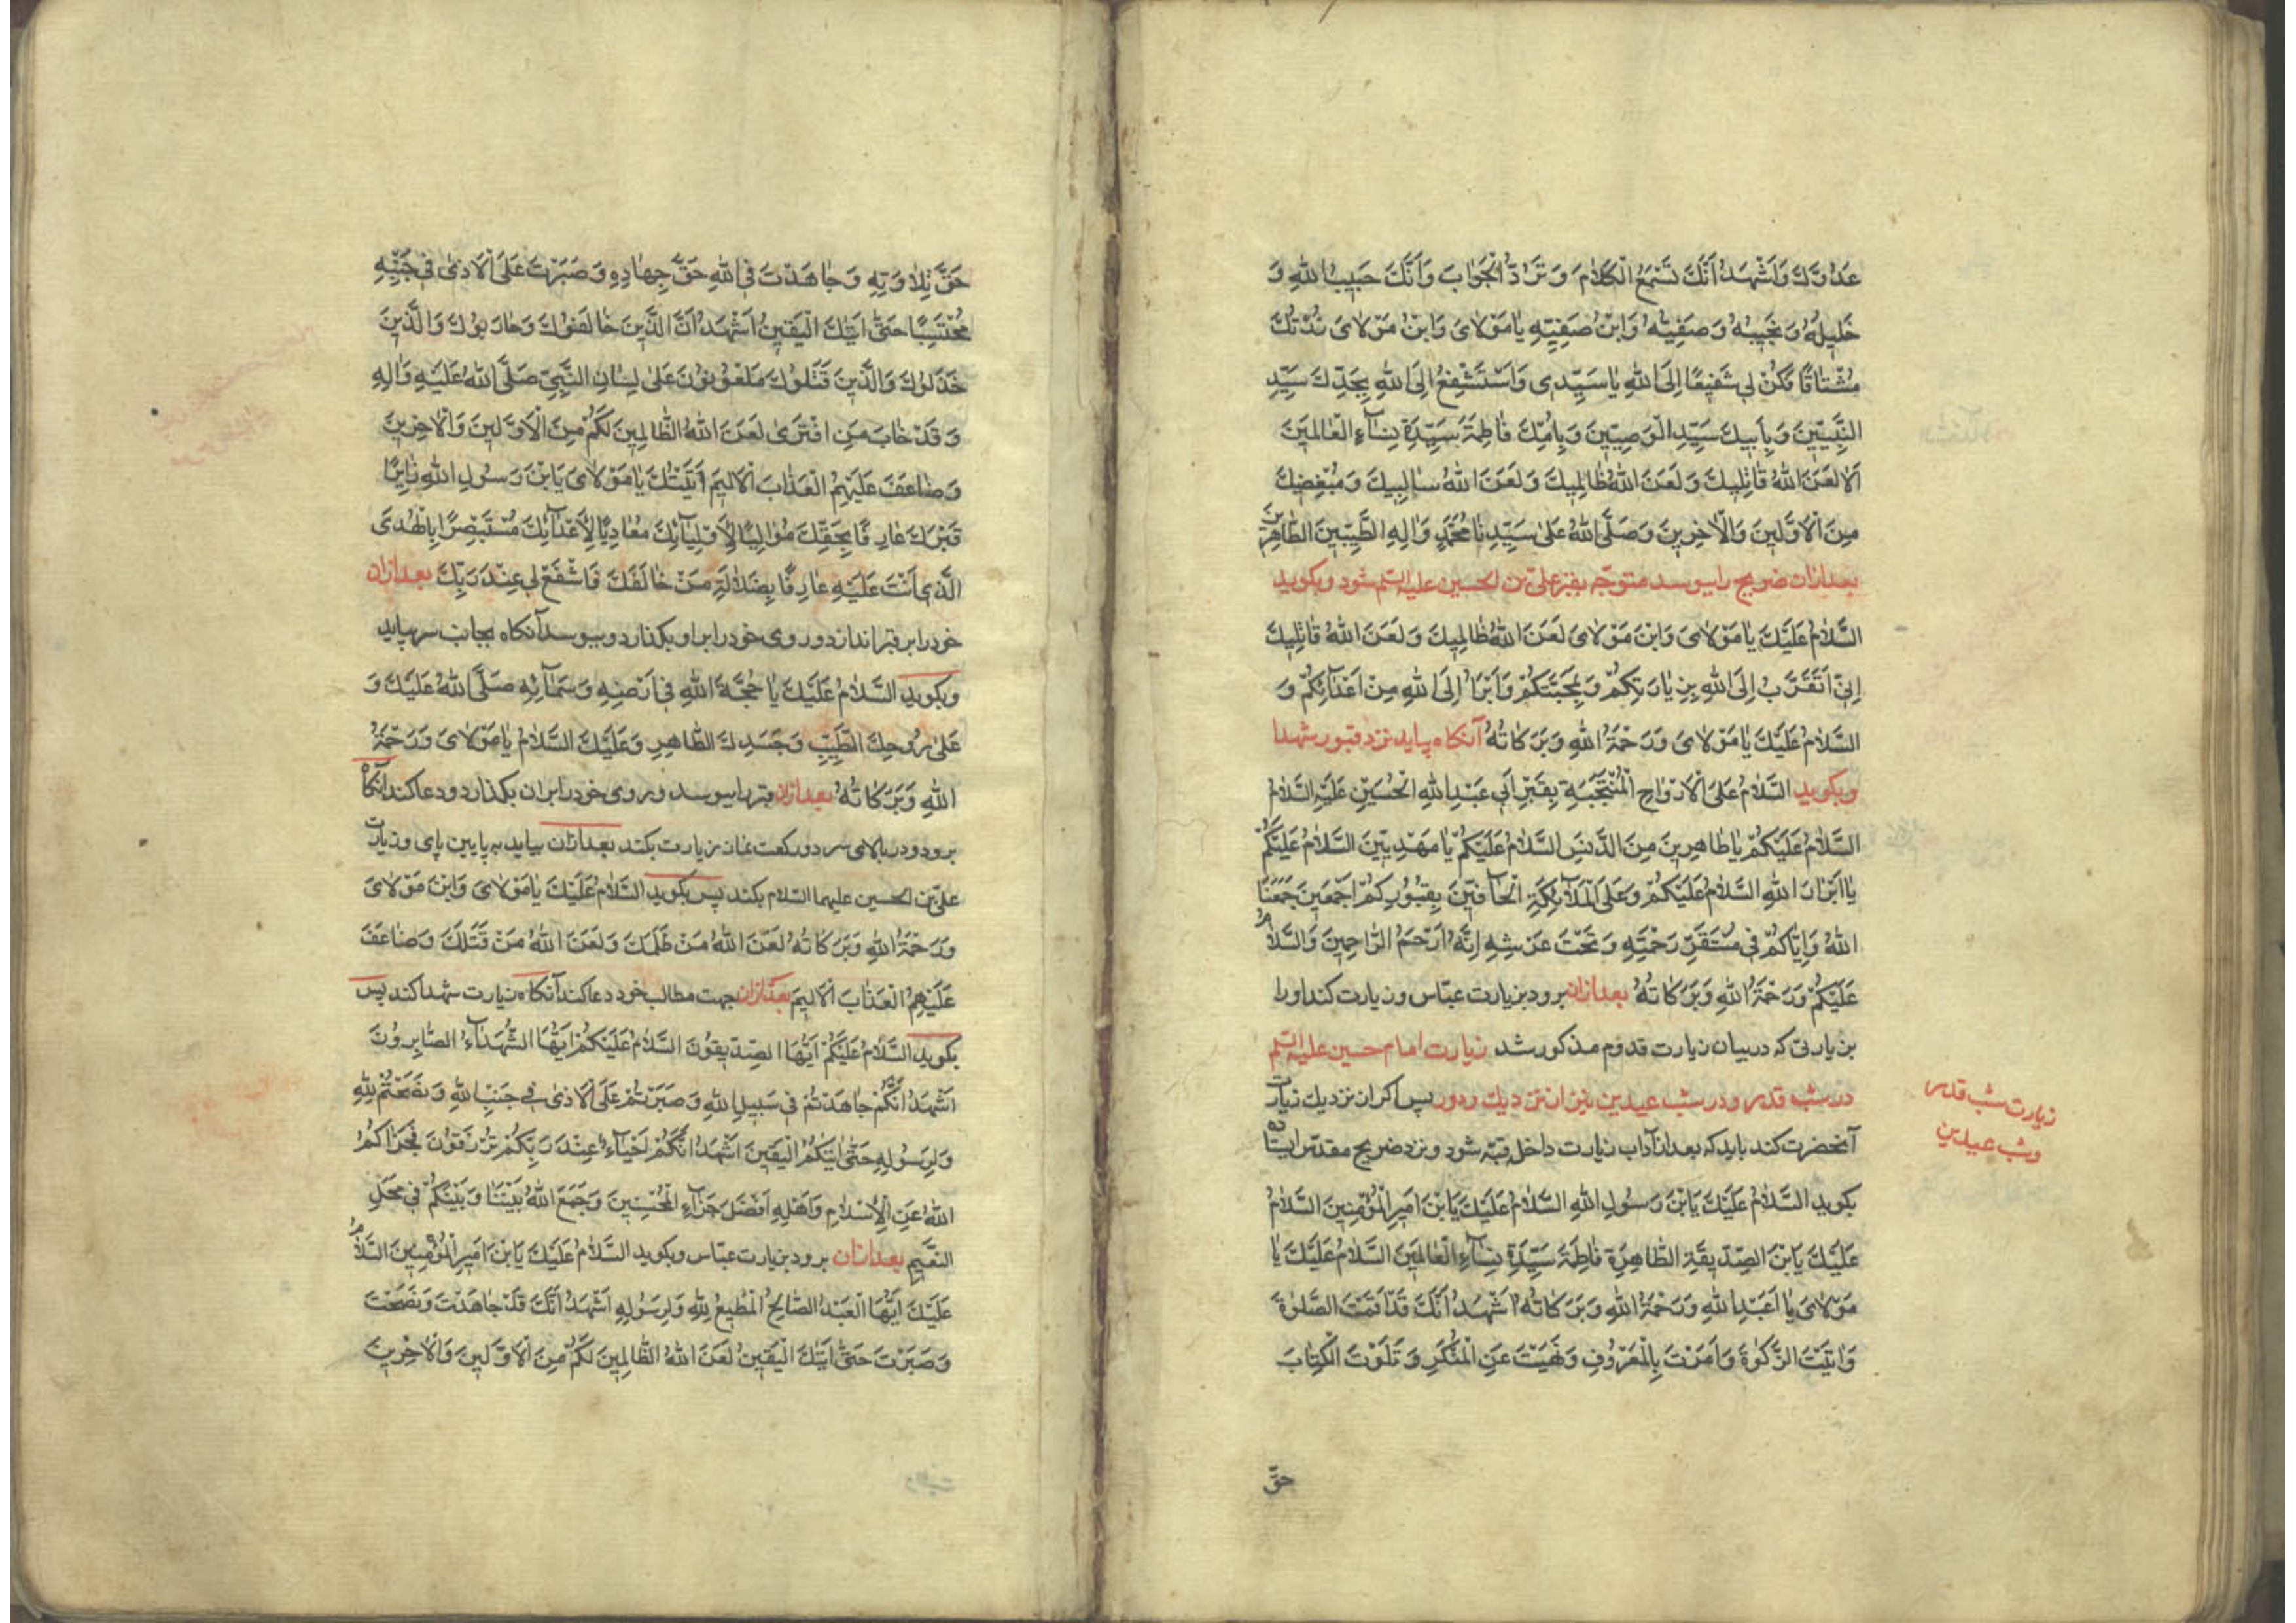 عَدُوِّكَ وَاَشْهَدُ اَنَّكَ تَسْمَعُ الْكَلامَ وَتَرُدُّ الْجَوابَ وَاَنَّكَ حَبيبُ اللهِ وَ
خَليلُهُ وَنَجيبُهُ وَصَفِيُّهُ وَابْنُ صَفِيِّهِ يا مَوْلاىَ وَابْنَ مَوْلاىَ زُرْتُكَ
مُشْتاقًا فَكُنْ لى شَفيعًا اِلَى اللهِ يا سَيِّدى وَاَسْتَشْفِعُ اِلَى اللهِ بِجَدِّكَ سَيِّدِ
النَّبِيّينَ وَبِاَبيكَ سَيِّدِ الْوَصِيّينَ وَبِاُمِّكَ فاطِمَةَ سَيِّدَةِ نِسآءِ الْعالَمينَ
اَلا لَعَنَ اللهُ قاتِليكَ وَلَعَنَ اللهُ ظالِميكَ وَلَعَنَ اللهُ سالِبيكَ وَمُبْغِضيكَ
مِنَ الْاَوَّلينَ وَالْاخِرينَ وَصَلَّى اللهُ عَلى سَيِّدِنا مُحَمَّدٍ وَالِهِ الطَّيِّبينَ الطّاهِرينَ
بعد ازان ضريح را ببوسد متوجّه بقبر على بن الحسين عليه السّلم شود وبكويد
السَّلامُ عَلَيْكَ يا مَوْلاىَ وَابْنَ مَوْلاىَ لَعَنَ اللهُ ظالِميكَ وَلَعَنَ اللهُ قاتِليكَ
اِنّى اَتَقَرَّبُ اِلَى اللهِ بِزِيارَتِكُمْ وَبِمَحَبَّتِكُمْ وَاَبْرَأُ اِلَى اللهِ مِنْ اَعْدآئِكُمْ وَ
السَّلامُ عَلَيْكَ يا مَوْلاىَ وَرَحْمَةُ اللهِ وَبَرَكاتُهُ آنكاه بيايد نزد قبور شهدا
وبكويد السَّلامُ عَلَى الْاَرْواحِ الْمُنْتَجَبَةِ بِقَبْرِ اَبى عَبْدِ اللهِ الْحُسَيْنِ عَلَيْهِ السَّلامُ
السَّلامُ عَلَيْكُمْ يا طاهِرينَ مِنَ الدَّنَسِ السَّلامُ عَلَيْكُمْ يا مَهْدِيّينَ السَّلامُ عَلَيْكُمْ
يا اَبْرارَ اللهِ السَّلامُ عَلَيْكُمْ وَعَلَى الْمَلآئِكَةِ الْحآفّينَ بِقُبُورِكُمْ اَجْمَعينَ جَمَعَنَا
اللهُ وَاِيّاكُمْ فى مُسْتَقَرِّ رَحْمَتِهِ وَتَحْتَ عَرْشِهِ اِنَّهُ اَرْحَمُ الرّاحِمينَ وَالسَّلامُ
عَلَيْكُمْ وَرَحْمَةُ اللهِ وَبَرَكاتُهُ بعد ازان برود بزيارت عبّاس وزيارت كند اورا
بزيارتى كه در بيان زيارت قدوم مذكور شد زيارت امام حسين عليه السّلم
در شب قدر ودر شب عيدين نيز از نزديك ودور پس اكر از نزديك زيارت
آنحضرت كند بايد كه بعد از آداب زيارت داخل قبّه شود ونزد ضريح مقدّس ايستاده
بكويد السَّلامُ عَلَيْكَ يَابْنَ رَسُولِ اللهِ السَّلامُ عَلَيْكَ يَابْنَ اَميرِ الْمُؤْمِنينَ السَّلامُ
عَلَيْكَ يَابْنَ الصِّدّيقَةِ الطّاهِرَةِ فاطِمَةَ سَيِّدَةِ نِسآءِ الْعالَمينَ السَّلامُ عَلَيْكَ يا
مَوْلاىَ يا اَبا عَبْدِ اللهِ وَرَحْمَةُ اللهِ وَبَرَكاتُهُ اَشْهَدُ اَنَّكَ قَدْ اَقَمْتَ الصَّلوةَ
وَاتَيْتَ الزَّكوةَ وَاَمَرْتَ بِالْمَعْرُوفِ وَنَهَيْتَ عَنِ الْمُنْكَرِ وَتَلَوْتَ الْكِتابَ
حقّ
زيارت شب قدر
وشب عيدين
حَقَّ تِلاوَتِهِ وَجاهَدْتَ فِى اللهِ حَقَّ جِهادِهِ وَصَبَرْتَ عَلَى الْاَذى فى جَنْبِهِ
مُحْتَسِبًا حَتّى اَتيكَ الْيَقينُ اَشْهَدُ اَنَّ الَّذينَ خالَفُوكَ وَحارَبُوكَ وَالَّذينَ
خَذَلُوكَ وَالَّذينَ قَتَلُوكَ مَلْعُونُونَ عَلى لِسانِ النَّبِىِّ صَلَّى اللهُ عَلَيْهِ وَالِهِ
وَقَدْ خابَ مَنِ افْتَرى لَعَنَ اللهُ الظّالِمينَ لَكُمْ مِنَ الْاَوَّلينَ وَالْاخِرينَ
وَضاعَفَ عَلَيْهِمُ الْعَذابَ الْاَليمَ اَتَيْتُكَ يا مَوْلاىَ يَابْنَ رَسُولِ اللهِ زائِرًا
قَبْرَكَ عارِفًا بِحَقِّكَ مُوالِيًا لِاَوْلِيآئِكَ مُعادِيًا لِاَعْدآئِكَ مُسْتَبْصِرًا بِالْهُدَى
الَّذى اَنْتَ عَلَيْهِ عارِفًا بِضَلالَةِ مَنْ خالَفَكَ فَاشْفَعْ لى عِنْدَ رَبِّكَ بعد ازان
خودرا بر قبر اندازد وروى خودرا براو بكذارد وببوسد آنكاه بجانب سر بيايد
وبكويد السَّلامُ عَلَيْكَ يا حُجَّةَ اللهِ فى اَرْضِهِ وَسَمآئِهِ صَلَّى اللهُ عَلَيْكَ وَ
عَلى رُوحِكَ الطَّيِّبِ وَجَسَدِكَ الطّاهِرِ وَعَلَيْكَ السَّلامُ يا مَوْلاىَ وَرَحْمَةُ
اللهِ وَبَرَكاتُهُ بعد ازان قبررا ببوسد وروى خودرا بران بكذارد ودعا كند آنكاه
برود ودر بالاى سر دو ركعت نماز زيارت بكند بعد ازان بيايد به پايين پاى وزيارت
على بن الحسين عليهما السّلام بكند پس بكويد السَّلامُ عَلَيْكَ يا مَوْلاىَ وَابْنَ مَوْلاىَ
وَرَحْمَةُ اللهِ وَبَرَكاتُهُ لَعَنَ اللهُ مَنْ ظَلَمَكَ وَلَعَنَ اللهُ مَنْ قَتَلَكَ وَضاعَفَ
عَلَيْهِمُ الْعَذابَ الْاَليمَ بعد ازان جهت مطالب خود دعا كند آنكاه زيارت شهدا كند پس
بكويد السَّلامُ عَلَيْكُمْ اَيُّهَا الصِّدّيقُونَ السَّلامُ عَلَيْكُمْ اَيُّهَا الشُّهَدآءُ الصّابِرُونَ
اَشْهَدُ اَنَّكُمْ جاهَدْتُمْ فى سَبيلِ اللهِ وَصَبَرْتُمْ عَلَى الْاَذى فى جَنْبِ اللهِ وَنَصَحْتُمْ لِلّهِ
وَلِرَسُولِهِ حَتّى اَتيكُمُ الْيَقينُ اَشْهَدُ اَنَّكُمْ اَحْيآءٌ عِنْدَ رَبِّكُمْ تُرْزَقُونَ فَجَزاكُمُ
اللهُ عَنِ الْاِسْلامِ وَاَهْلِهِ اَفْضَلَ جَزآءِ الْمُحْسِنينَ وَجَمَعَ اللهُ بَيْنَنا وَبَيْنَكُمْ فى مَحَلِّ
النَّعيمِ بعد ازان برود بزيارت عبّاس وبكويد السَّلامُ عَلَيْكَ يَابْنَ اَميرِ الْمُؤْمِنينَ السَّلامُ
عَلَيْكَ اَيُّهَا الْعَبْدُ الصّالِحُ الْمُطيعُ لِلّهِ وَلِرَسُولِهِ اَشْهَدُ اَنَّكَ قَدْ جاهَدْتَ وَنَصَحْتَ
وَصَبَرْتَ حَتّى اَتيكَ الْيَقينُ لَعَنَ اللهُ الظّالِمينَ لَكُمْ مِنَ الْاَوَّلينَ وَالْاخِرينَ